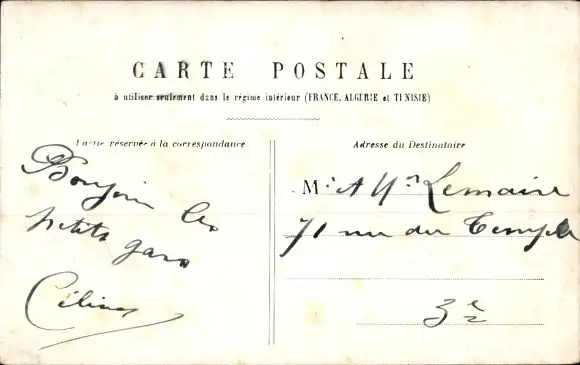 CARTE POSTALE
à utiliser seulement dans le régime intérieur (FRANCE, ALGÉRIE et TUNISIE)
Partie réservée à la correspondance
Bonjour les
petits gars
Céline
Adresse du Destinataire
M. Lemaire
71 rue du Temple
3e